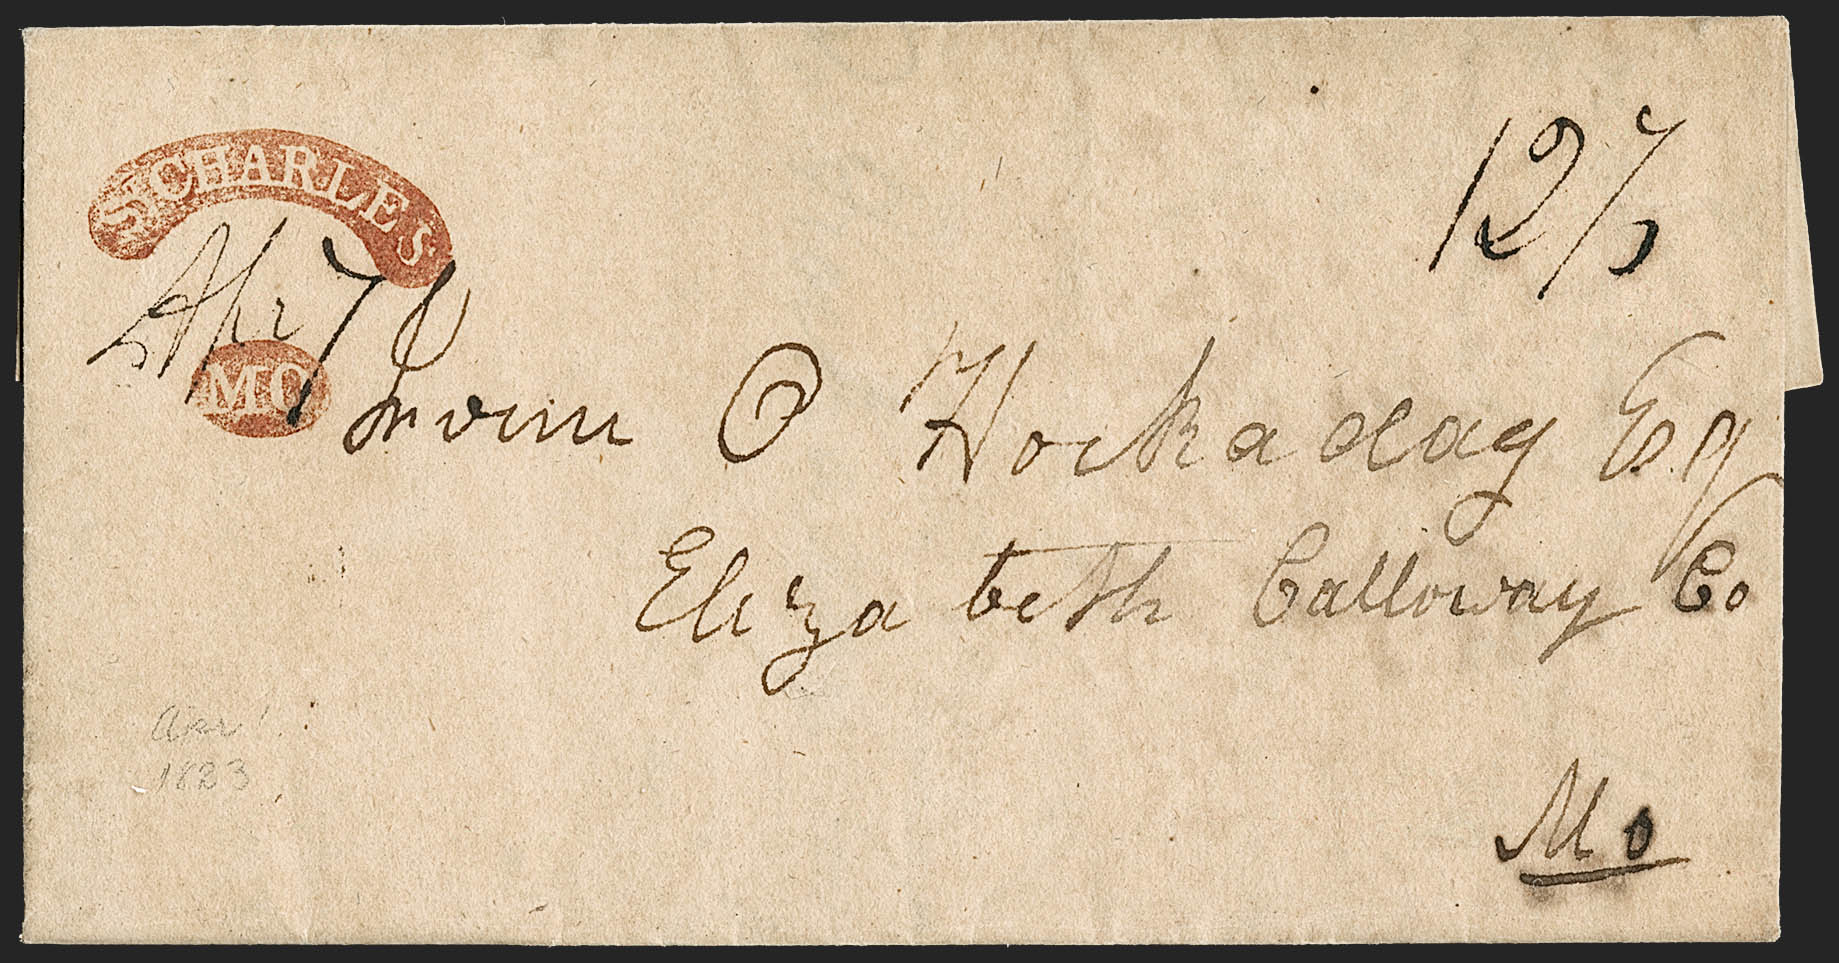 St CHARLES
Apr 7
MO
12½
Irvine O Hockaday Esq
Elizabeth Calloway Co
Mo
Apr
1823